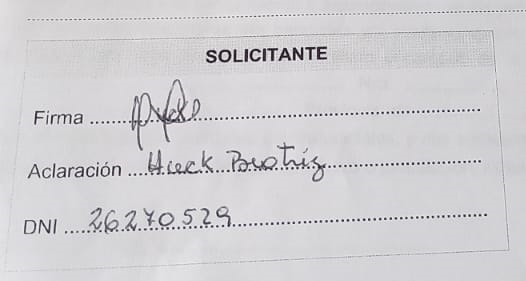 SOLICITANTE
Firma
Aclaración Hueck Beatriz
DNI 26270529